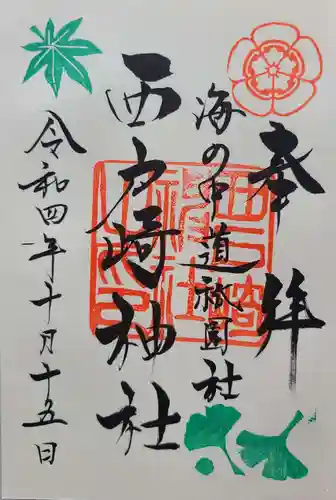 奉拝
海の中道祇園社
西戸崎神社
令和四年十月十五日